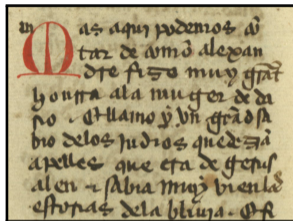 Mas aqui podemos cõ
tar de comõ alexan
dre fizo muy grãt
honrra ala muger de da
rio . Et llamo y vn grãd sa
bio delos iudios que dezã
apelles que era de gerus
alen ⁊ sabia muy bien las
estorias dela bliuia. Et